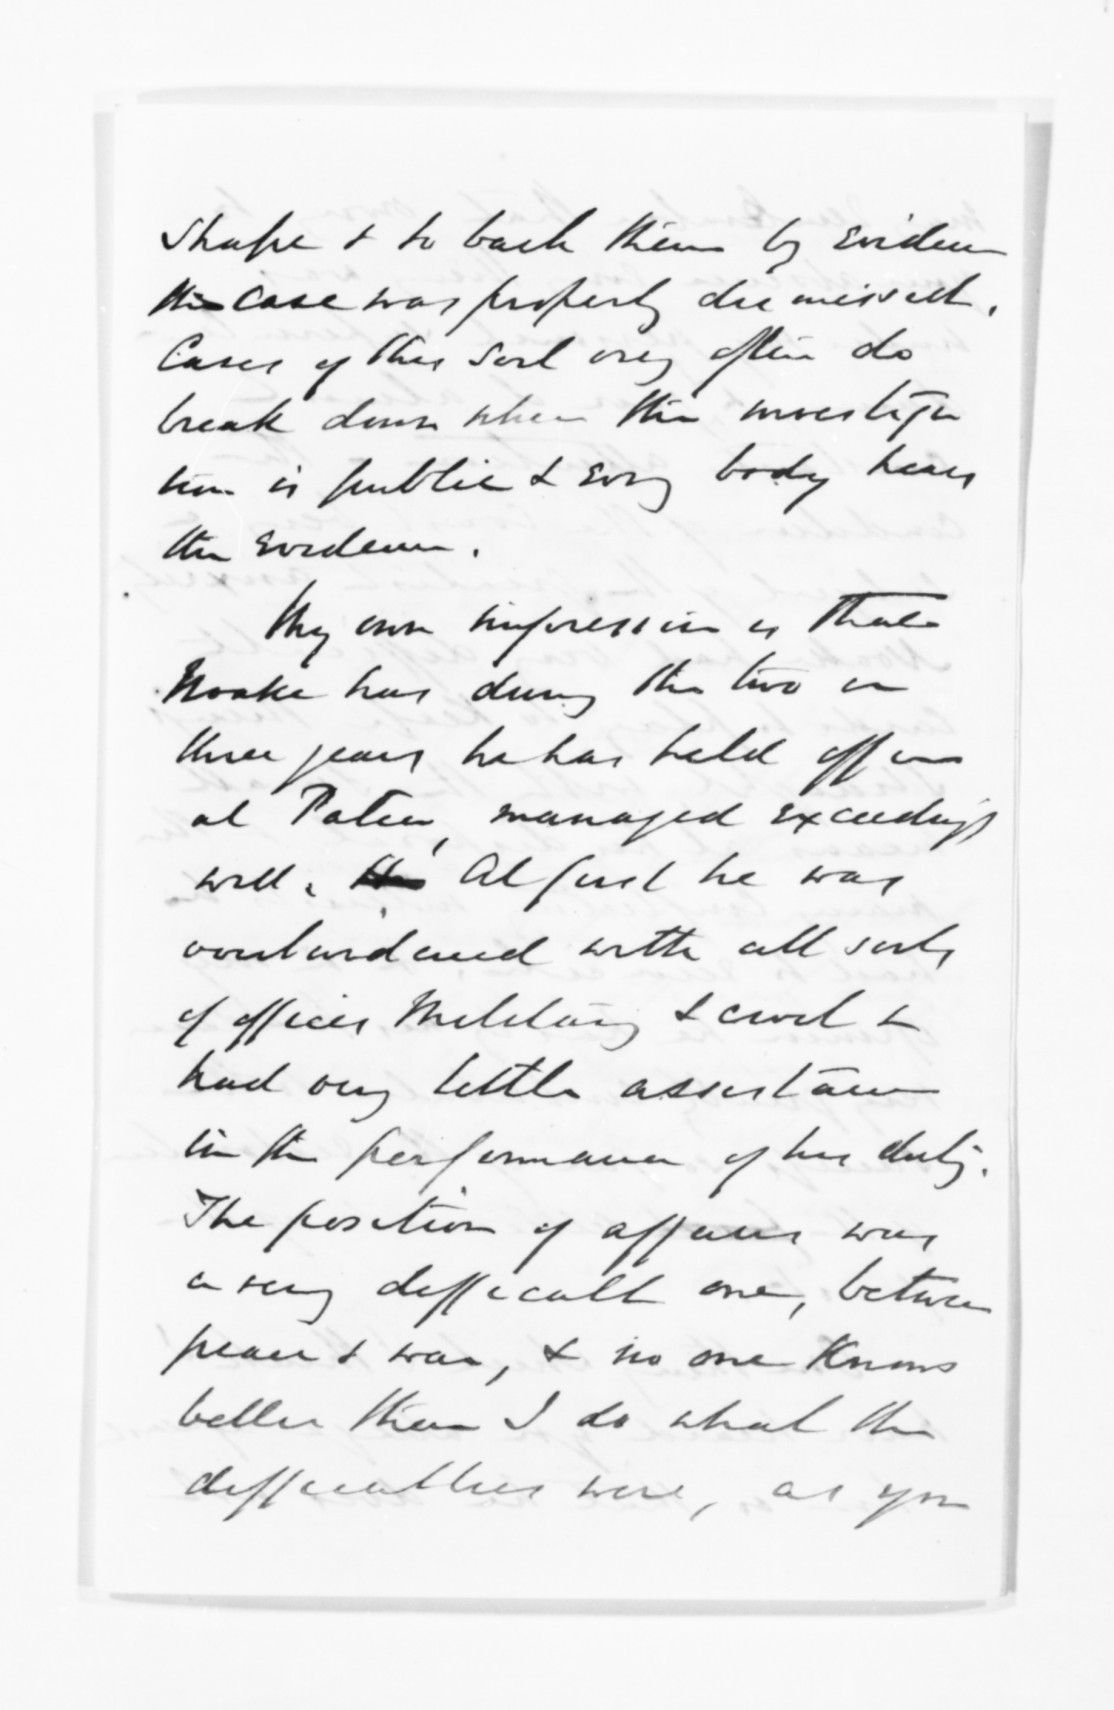 shape & to back them by evidence
the case was properly dismissed.
Cases of this sort very often do
break down when the investiga
tion is public & every body hears
the evidence.
My own impression is that
Noake has during the two or
three years he has held office
at Patea, managed exceedingly
well. At first he was
overburdened with all sorts
of offices Military & civil &
had very little assistance
in the performance of his duty.
The position of affairs was
a very difficult one, between
peace & war, & no one knows
better than I do what the
difficulties were, as you